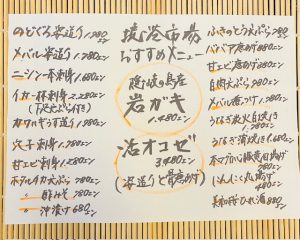 境港市場
おすすめメニュー
隠岐の島産
岩ガキ
1.480エン
活オコゼ
3480エン
(姿造りと骨唐揚げ)
のどぐろ姿造り 1.980エン
メバル姿造り 1.780エン
ニシン一本刺身 1.680エン
イカ一杯刺身 2.280エン
(下足天ぷら付き)
カワハギうす造り 1.980エン
穴子刺身 1.780エン
甘エビ刺身 1.280エン
ホタルイカ天ぷら 780エン
〃 酢みそ 780エン
〃 沖漬け 680エン
ふきのとう天ぷら 780エン
ババア唐揚げ 880エン
甘エビ唐揚げ 780エン
白肉天ぷら 980エン
メバル煮つけ 1.780エン
うなぎ炭火白焼き 1.780エン
うなぎ蒲焼き 1.680エン
にんにく丸揚げ 480エン
ひれ酒 880エン